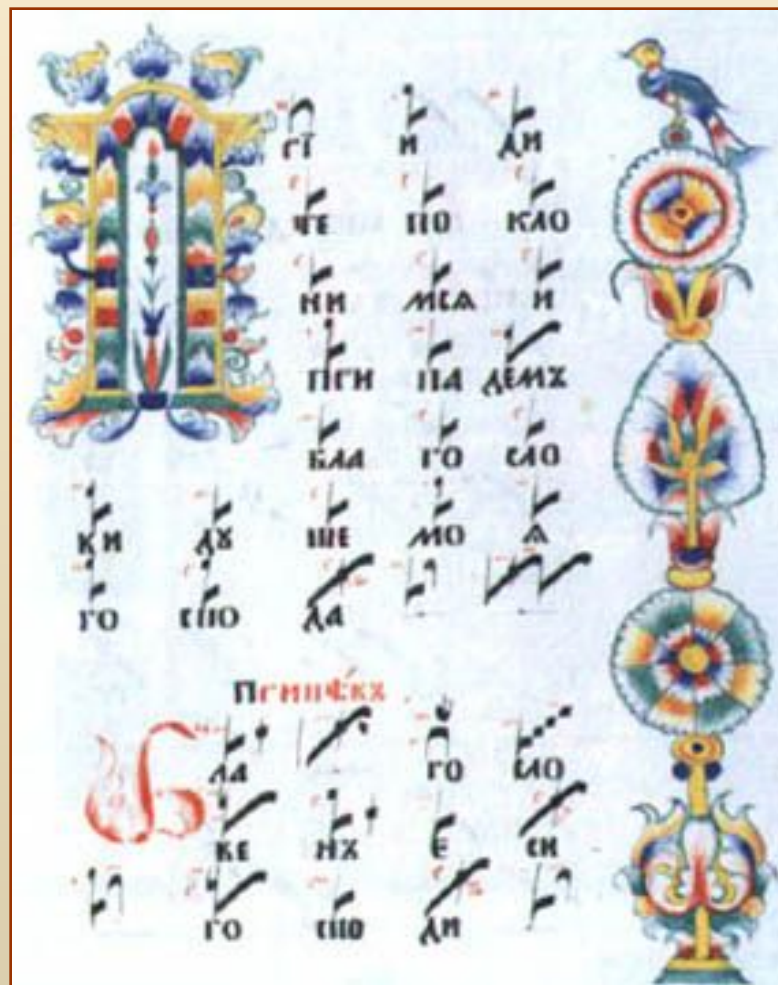 П рї и ди
те по кло
ни мсѧ и
при па демъ
бла го сло
ви дꙋ ше мо ѧ
го спо да
Припѣвъ
Б ла го сло
ве нъ е си
го спо ди